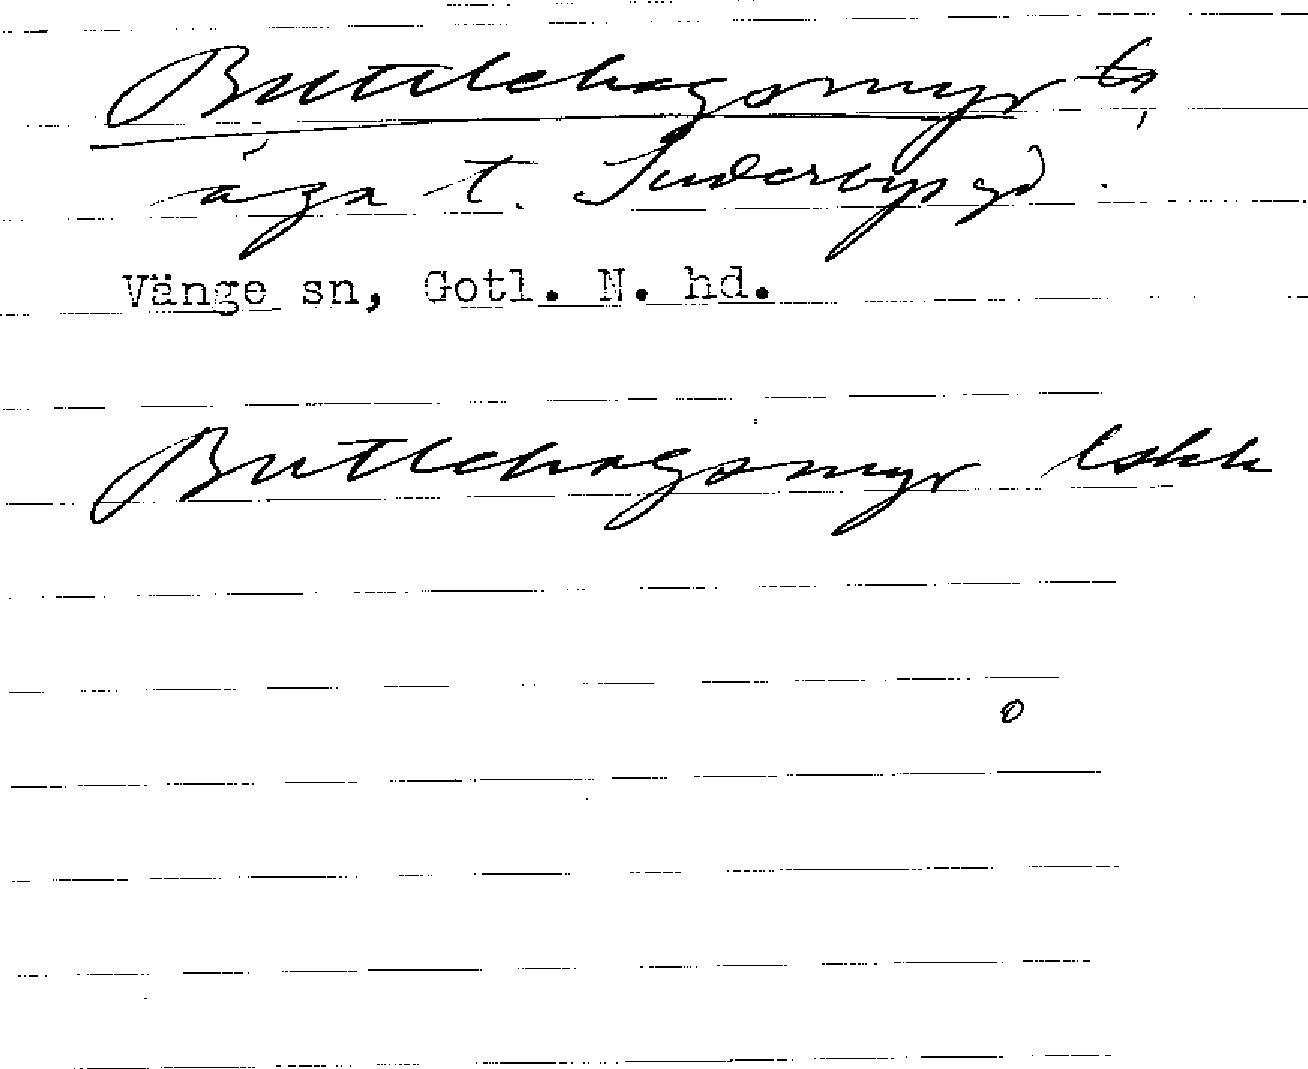 Buttlehagsmyr ts,
äga t. Suderbys gd.
Vänge sn, Gotl. N. hd.
Buttlehagsmyr Lskk